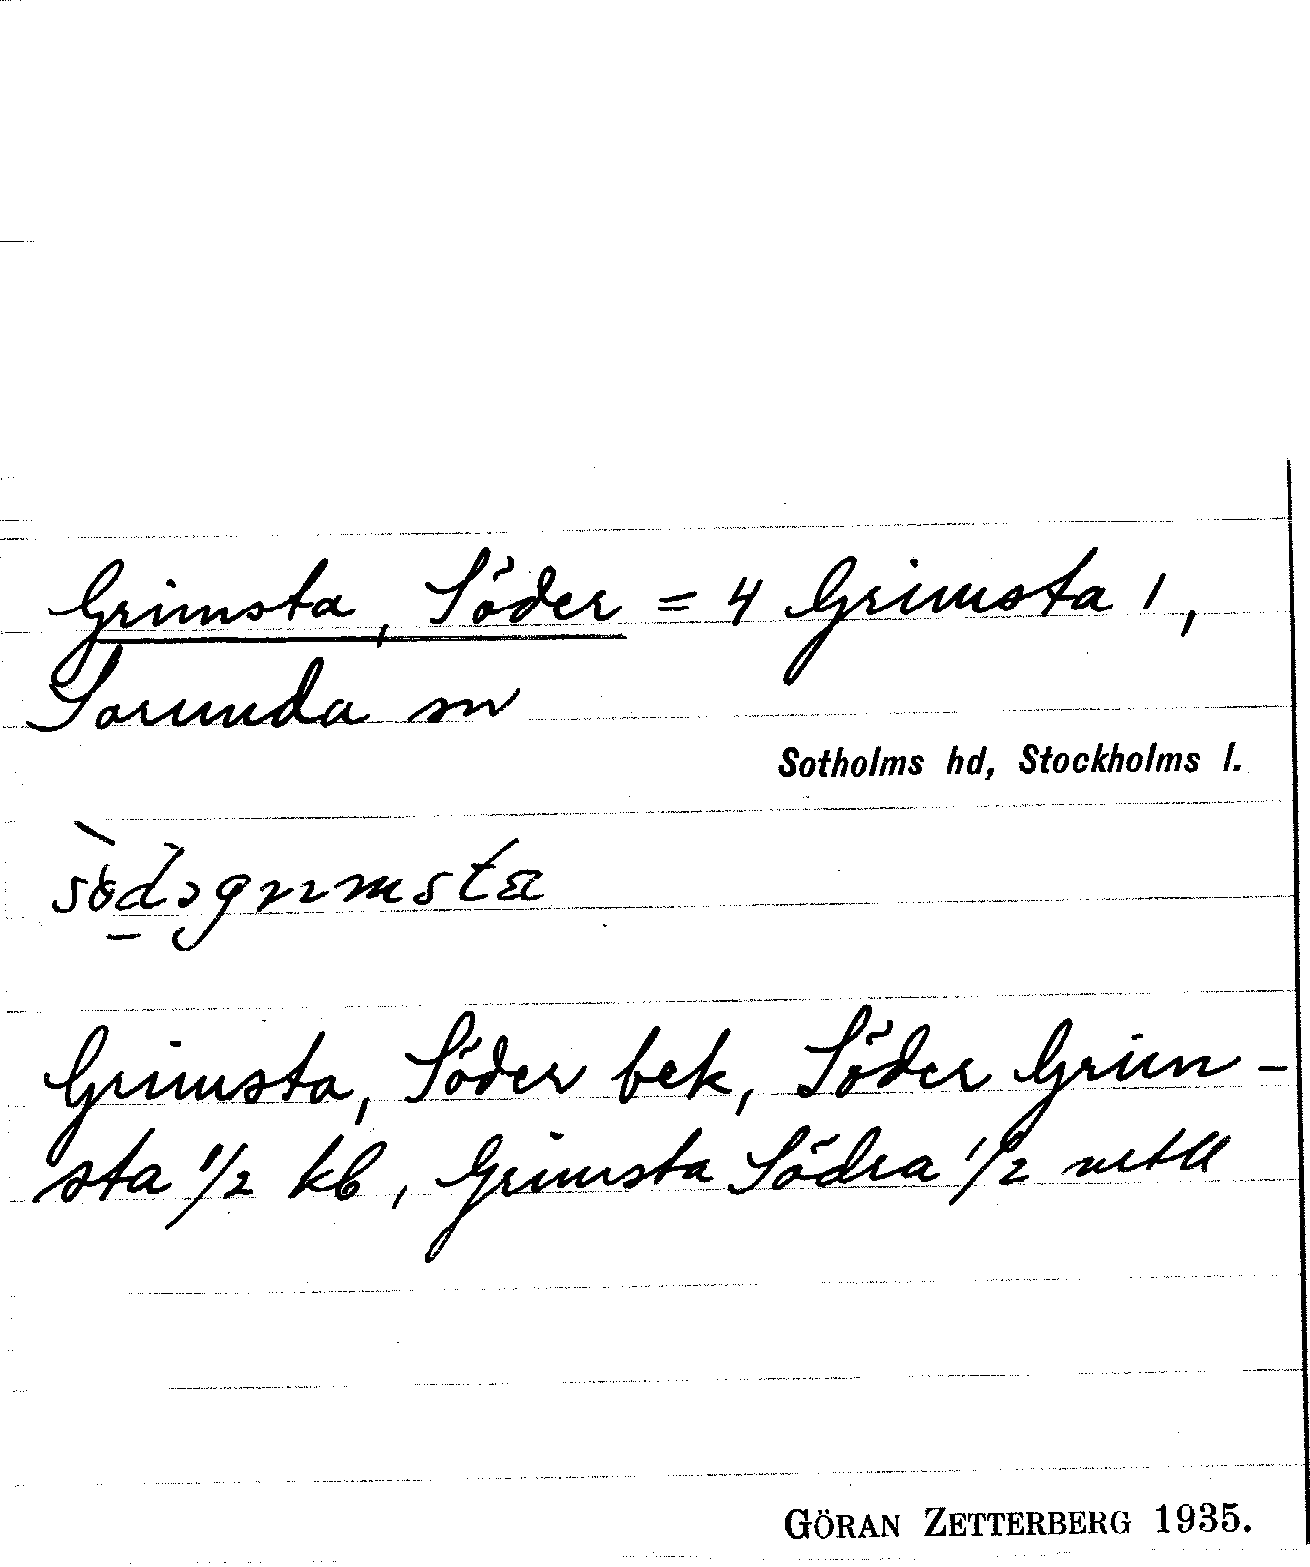 Grimsta, Söder = 4 Grimsta 1,
Sorunda sn
Sotholms hd, Stockholms l.
Grimsta, Söder bek, Söder Grim-
sta 1/2 kb, Grimsta Södra 1/2
GÖRAN ZETTERBERG 1935.